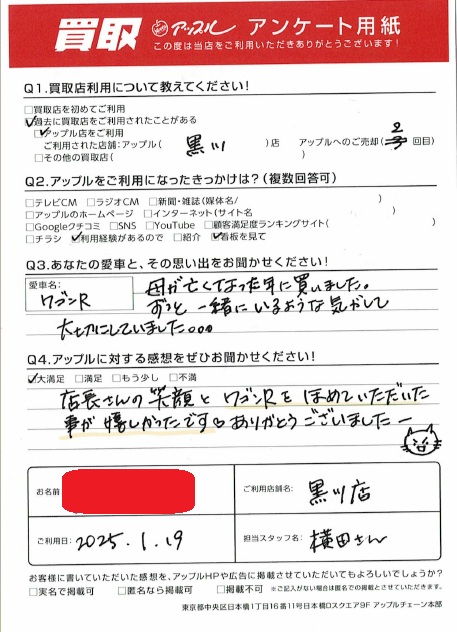 買取 アップル アンケート用紙
この度は当店をご利用いただきありがとうございます!
Q1.買取店利用について教えてください!
□買取店を初めてご利用
☑過去に買取店をご利用されたことがある
☑アップル店をご利用
ご利用された店舗:アップル( 黒川 )店 アップルへのご売却( 2 回目)
□その他の買取店( )
Q2.アップルをご利用になったきっかけは?(複数回答可)
□テレビCM □ラジオCM □新聞・雑誌(媒体名/ )
□アップルのホームページ □インターネット(サイト名 )
□Googleクチコミ □SNS □YouTube □顧客満足度ランキングサイト( )
□チラシ ☑利用経験があるので □紹介 ☑看板を見て
Q3.あなたの愛車と、その思い出をお聞かせください!
愛車名:
ワゴンR
母が亡くなった年に買いました。
ずっと一緒にいるような気がして
大切にしていました。。。
Q4.アップルに対する感想をぜひお聞かせください!
☑大満足 □満足 □もう少し □不満
店長さんの笑顔とワゴンRをほめていただいた
事が嬉しかったです。ありがとうございましたー
お名前
ご利用店舗名: 黒川店
ご利用日: 2025.1.19
担当スタッフ名: 横田さん
お客様に書いていただいた感想を、アップルHPや広告に掲載させていただいてもよろしいでしょうか?
□実名で掲載可 □匿名なら掲載可 □掲載不可 ※ご記入がない場合は匿名での掲載とさせていただきます。
東京都中央区日本橋1丁目16番11号日本橋Dスクエア9F アップルチェーン本部